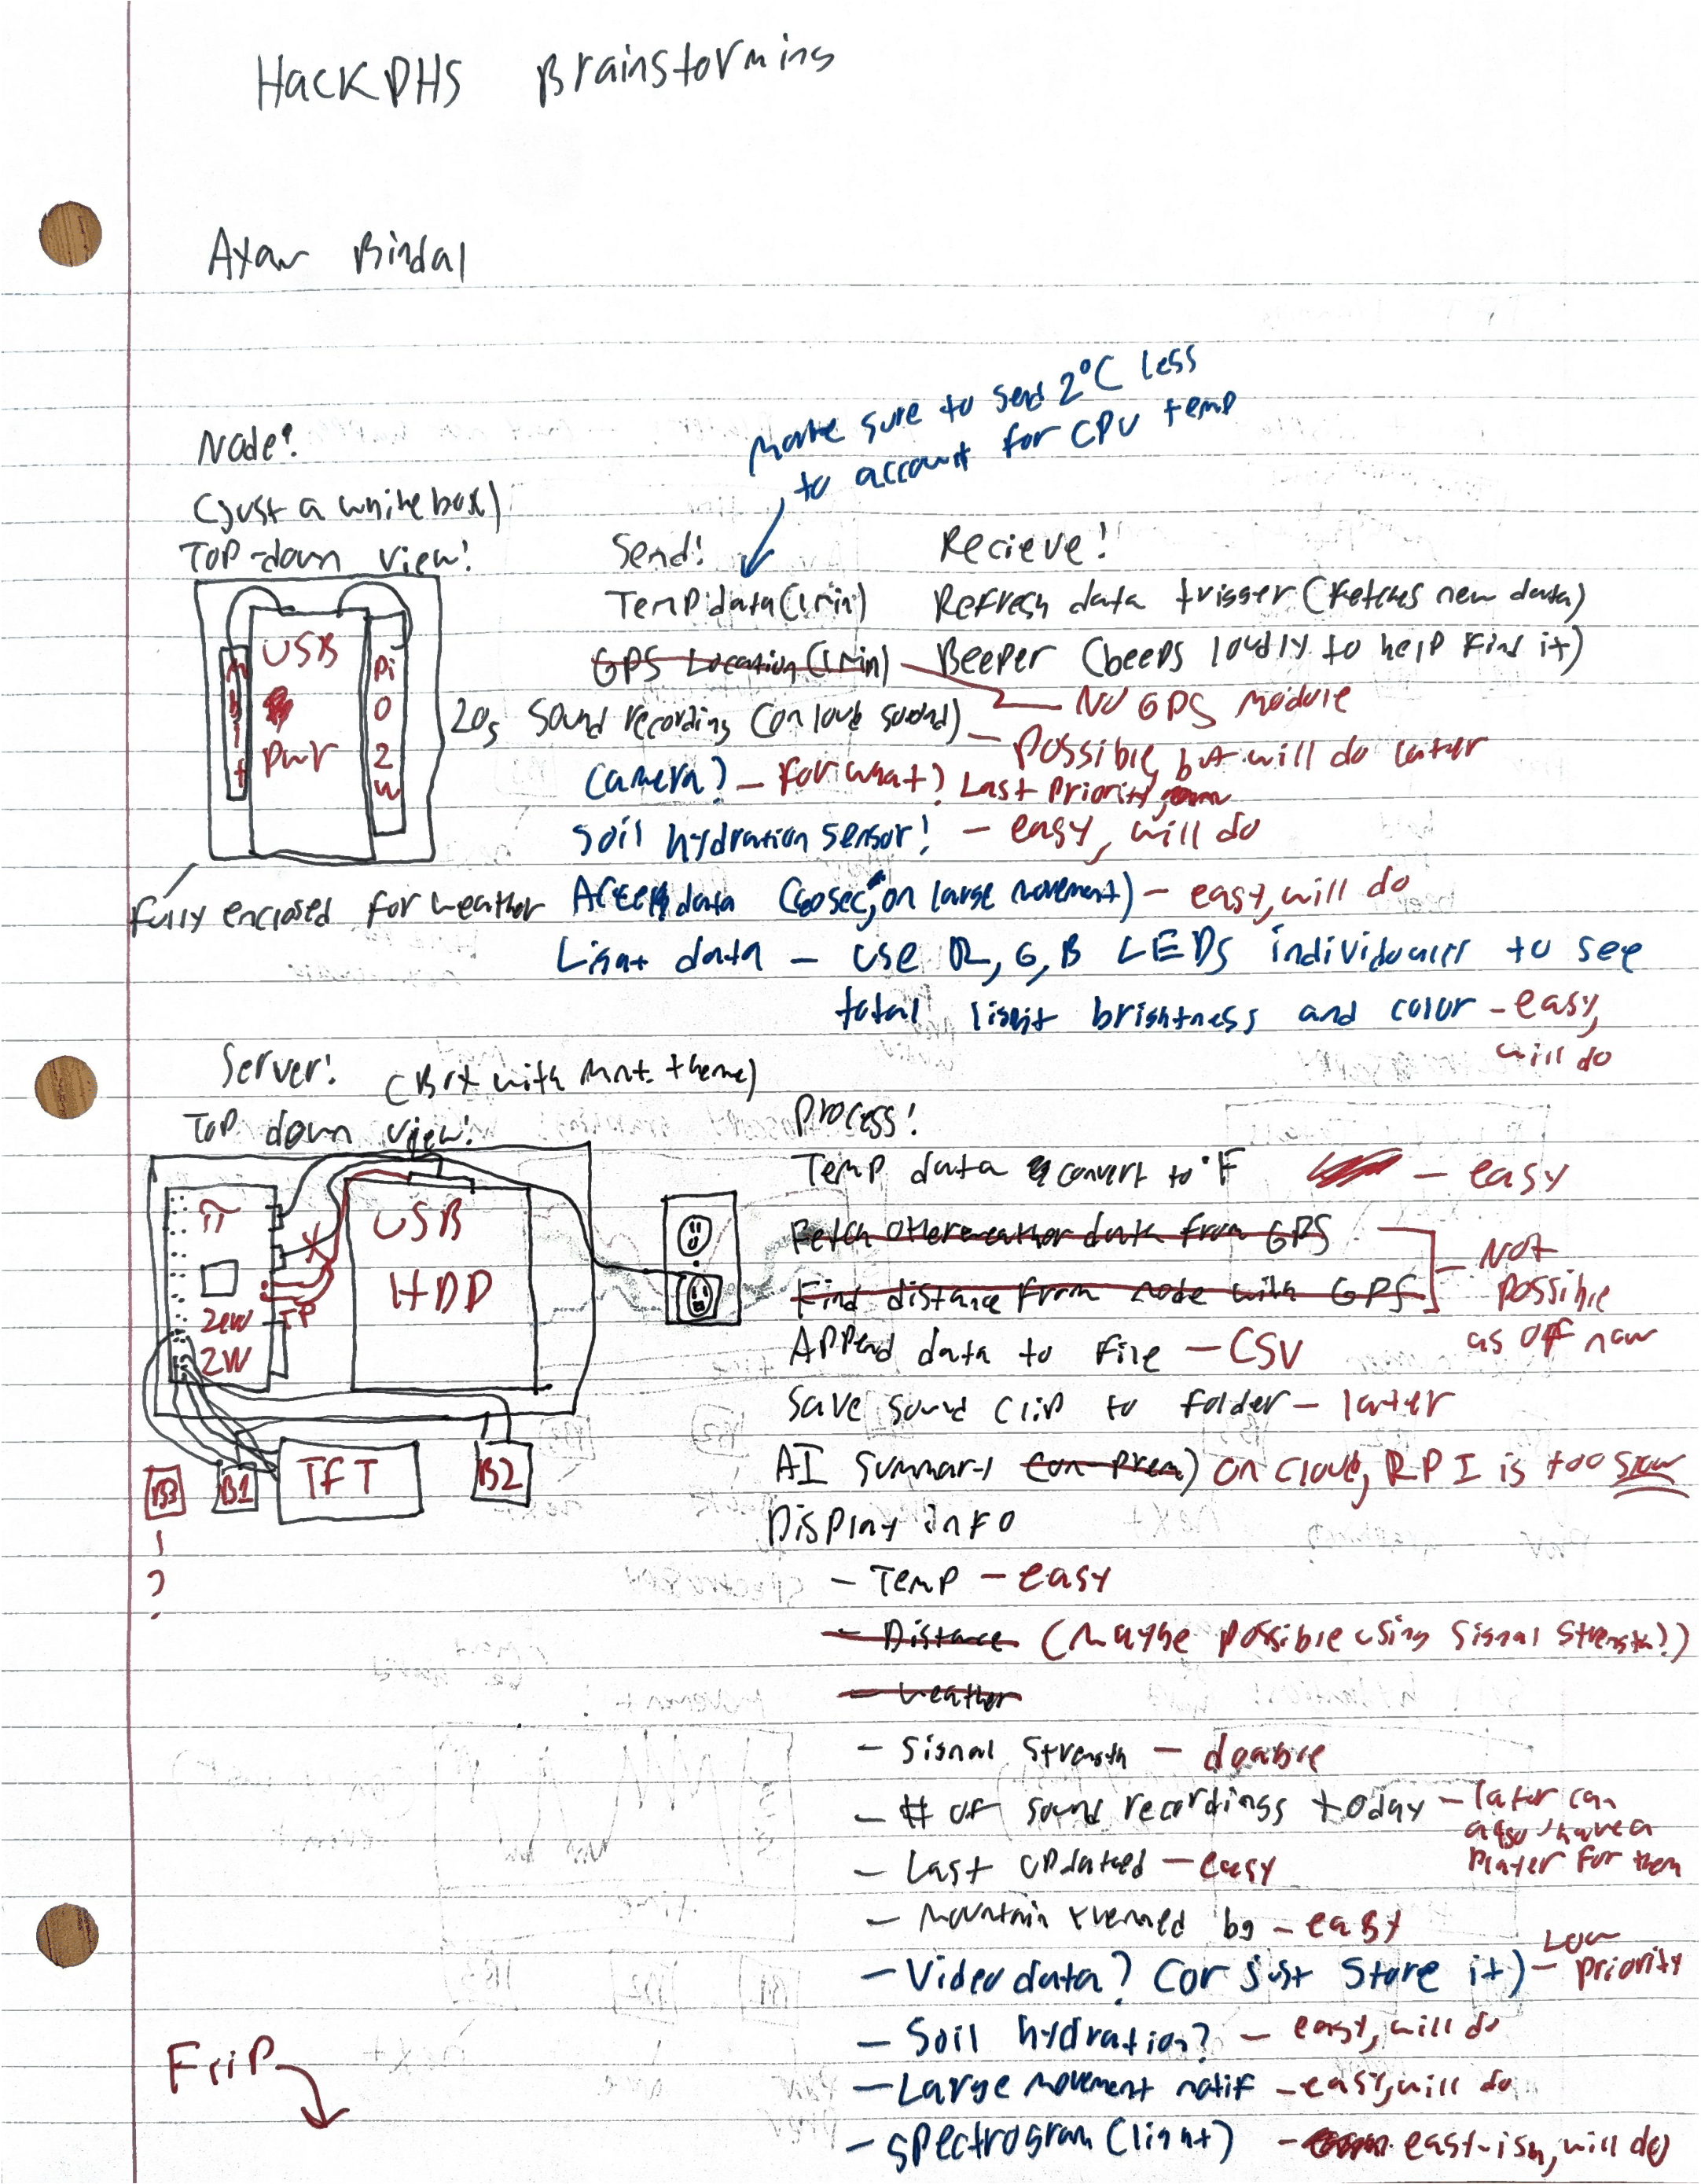 HackPHS Brainstorming
Ayaw Bindal
Make sure to send 2°C less
to account for CPU temp
Node:
(just a white box)
Top-down view:
USB
PWR
Pi
0
2
W
fully enclosed for weather
Send:
Temp data (1 min)
GPS Location (1 min)
20s Sound recording (on loud sound)
Camera? - For what? Last priority,
Soil hydration sensor! - easy, will do
Accel data (60 sec, on large movement) - easy, will do
Light data - use R, G, B LEDs individually to see
total light brightness and color - easy,
will do
Recieve!
Refresh data trigger (fetches new data)
Beeper (beeps loudly to help find it)
No GPS module
Possible, but will do later
Server: (Box with mnt. theme)
Top down view:
π
2W
TP
USB
HDD
B3
?
B1
TFT
B2
Process!
Temp data convert to °F - easy
Fetch other weather data from GPS
Find distance from node with GPS
Not
possible
as of now
Append data to file - CSV
Save sound clip to folder - later
AI summary (on-prem) on cloud, RPI is too slow
Display info
- Temp - easy
- Distance (Maybe possible using signal strength?)
- Weather
- Signal Strength - doable
- # of sound recordings today - later can
also have a
player for them
- Last updated - easy
- Mountain themed bg - easy
- Video data? (or just store it) - Low
priority
- Soil hydration? - easy, will do
- Large movement notif - easy, will do
- Spectrogram (light) - easy-ish, will do
Flip